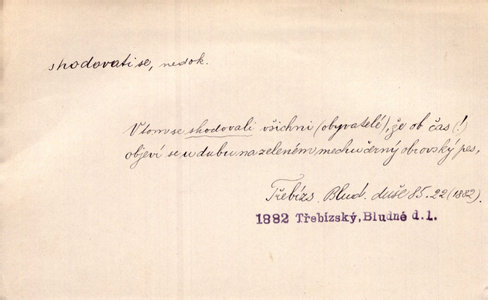 shodovati se, nedok.
V tom se shodovali všichni (obyvatelé), že ob čas (!)
objeví se u dubu na zeleném mechu černý obrovský pes,
Třebízs. Blud. duše 85. 22 (1882).
1882 Třebízský, Bludné d. 1.